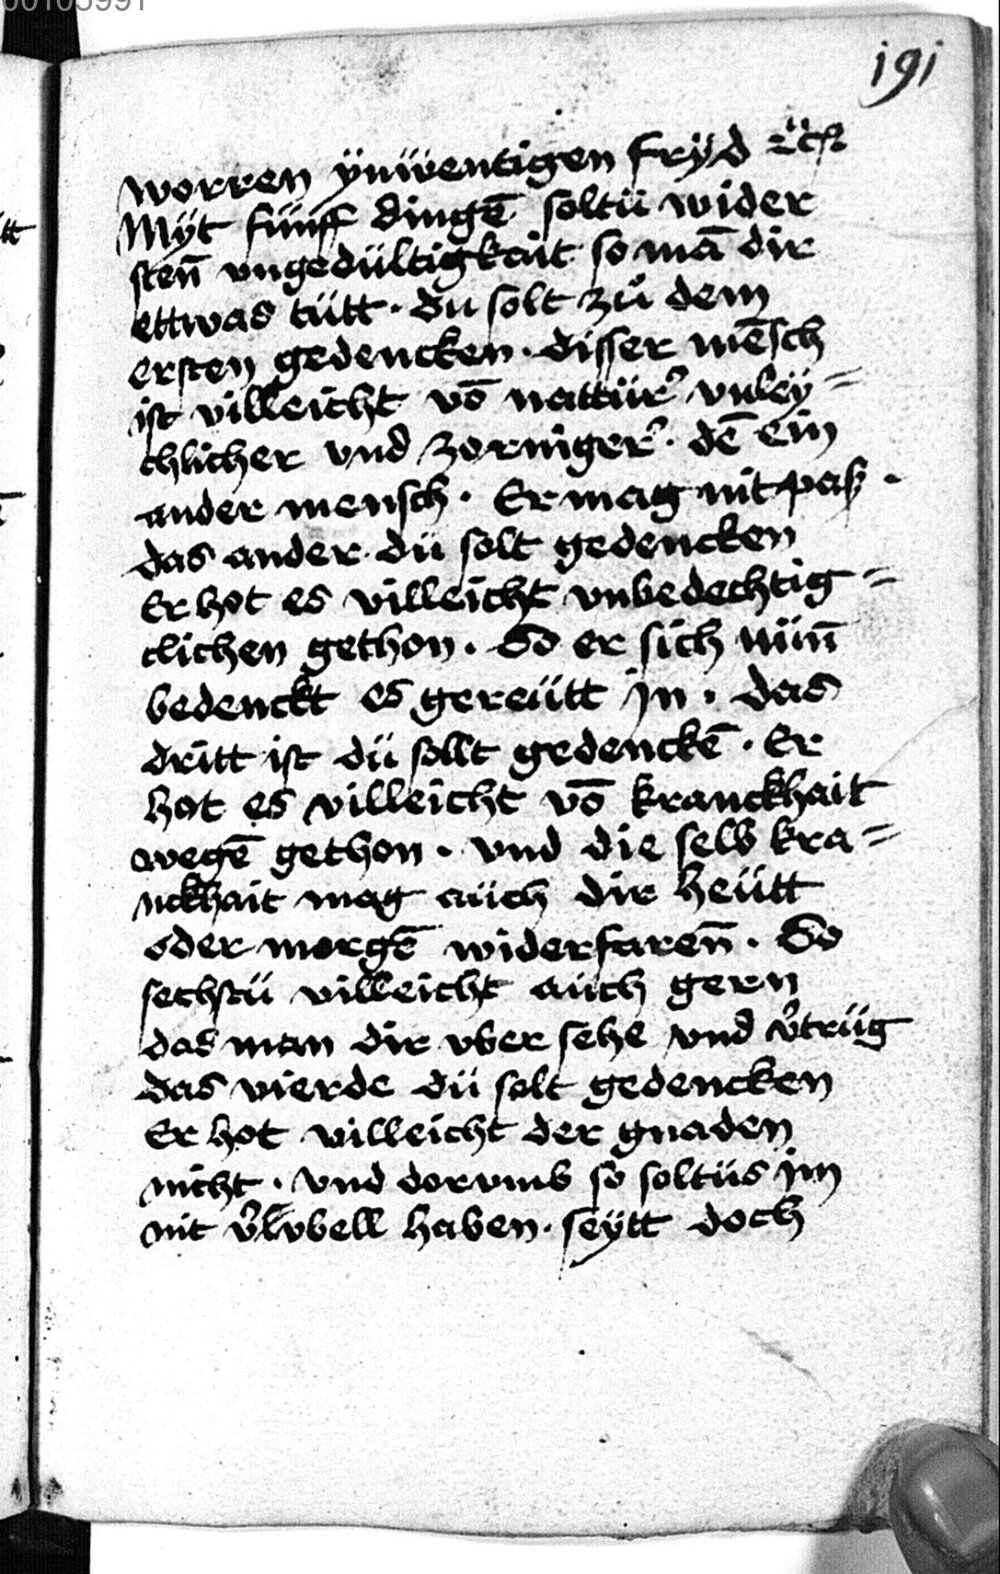 00105991
191
worren ynwentigen fryd ꝛc̈
Myt fünff dingē soltü wider
sten̄ vngedültigkait so mā dir
ettwas tütt · du solt zů dem
ersten gedencken · disser mēsch
ist villeicht vō nattür vnley=
chlicher vnd zorniger · dē ein
ander mensch · Er mag nit pas ·
das ander · dü solt gedencken
Er hot es villeicht vnbedechtig=
clichen gethon · So er sich nün̄
bedenckt es gereütt jn · das
dritt ist dü sollt gedenckē · Er
hot es villeicht vō kranckhait
wegē gethon · vnd die selb kra=
nckhait mag aüch dir heütt
oder morgē widerfaren̄ · So
sechstü villeicht aüch gern
das man dir vber sehe vnd v̓trüg
das vierde dü solt gedencken
Er hot villeicht der gnaden
nicht · vnd dorvmb so soltüs jm
nit vbell haben · seytt doch